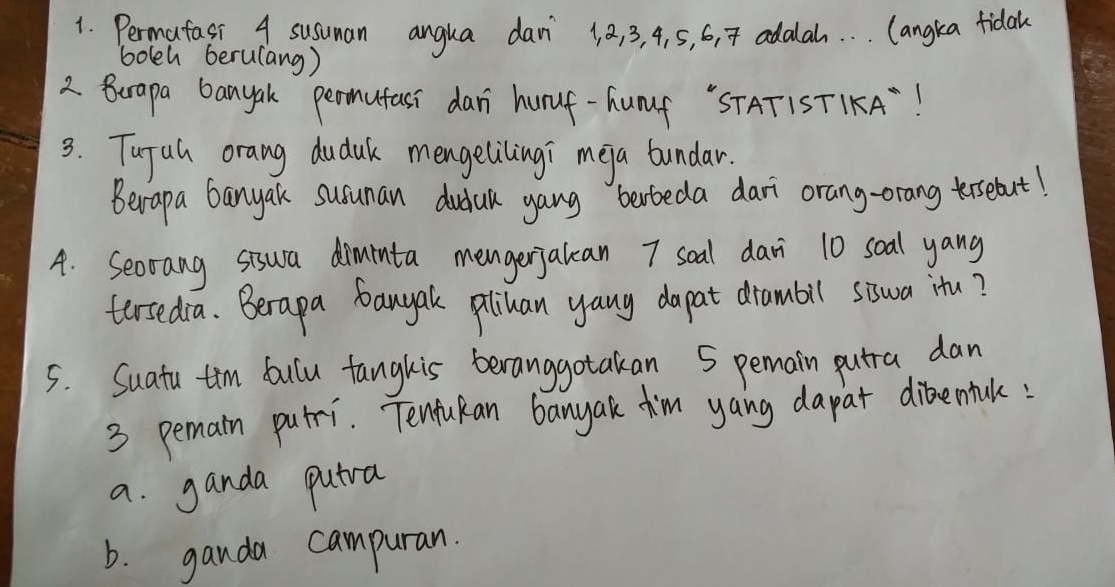 1. Permutasi 4 susunan angka dari 1,2,3,4,5,6,7 adalah ... (angka tidak
boleh berulang)
2 Berapa banyak permutasi dari huruf-huruf "STATISTIKA"!
3. Tujuh orang duduk mengelilingi meja bundar.
Berapa banyak susunan duduk yang berbeda dari orang-orang tersebut!
4. Seorang siswa diminta mengerjakan 7 soal dari 10 soal yang
tersedia. Berapa banyak pilihan yang dapat diambil siswa itu?
5. Suatu tim bulu tangkis beranggotakan 5 pemain putra dan
3 pemain putri. Tentukan banyak tim yang dapat dibentuk :
a. ganda putra
b. ganda campuran.